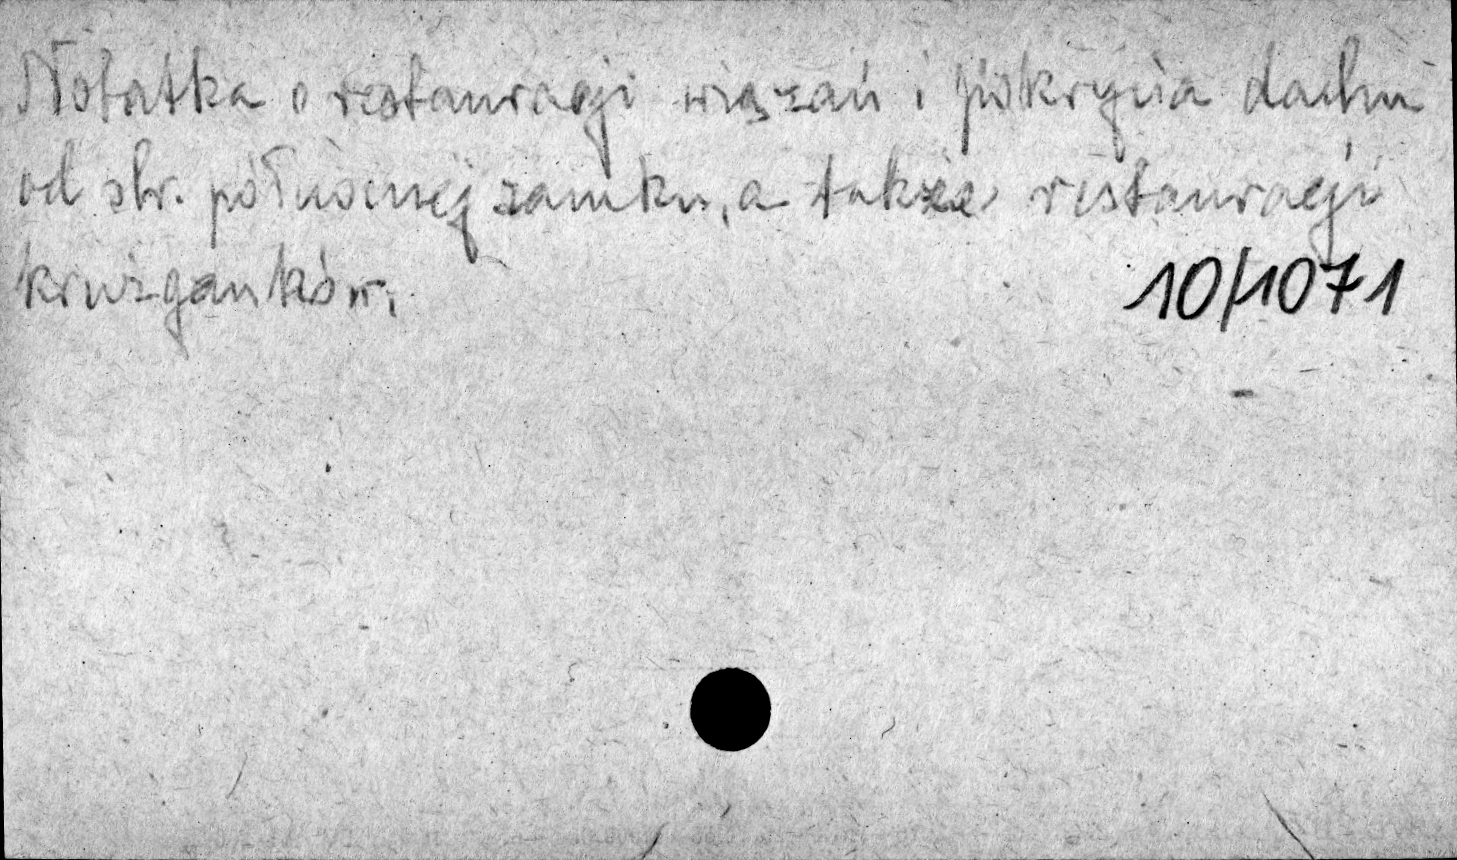 Notatka o restauracji wiązań i pokrycia dachu
od str. północnej zamku, a także restauracji
krużganków.
10/1071